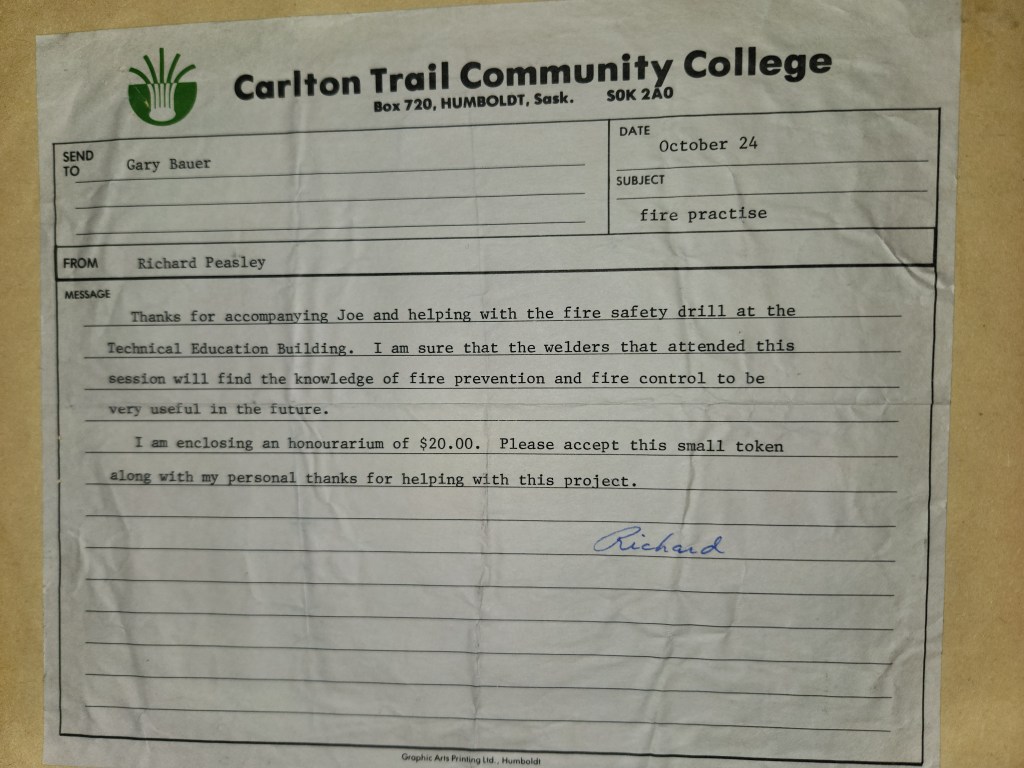 Carlton Trail Community College
Box 720, HUMBOLDT, Sask. S0K 2A0
SEND TO Gary Bauer
DATE October 24
SUBJECT
fire practise
FROM Richard Peasley
MESSAGE
Thanks for accompanying Joe and helping with the fire safety drill at the
Technical Education Building. I am sure that the welders that attended this
session will find the knowledge of fire prevention and fire control to be
very useful in the future.
I am enclosing an honourarium of $20.00. Please accept this small token
along with my personal thanks for helping with this project.
Richard
Graphic Arts Printing Ltd., Humboldt